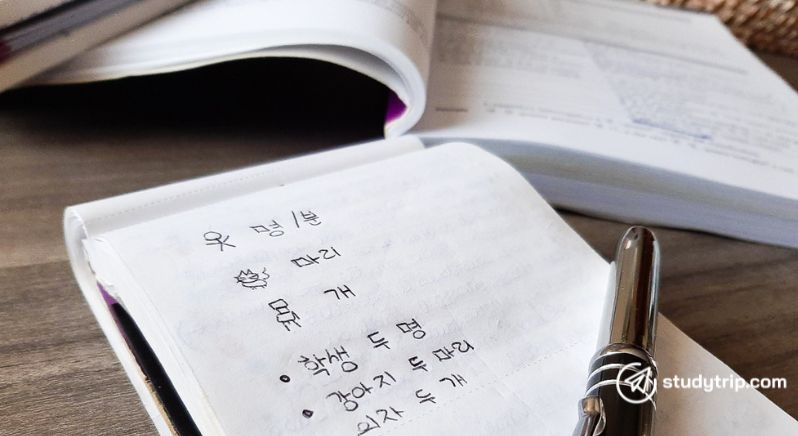 명/분
마리
개
• 학생 두 명
• 강아지 두 마리
의자 두 개
studytrip.com